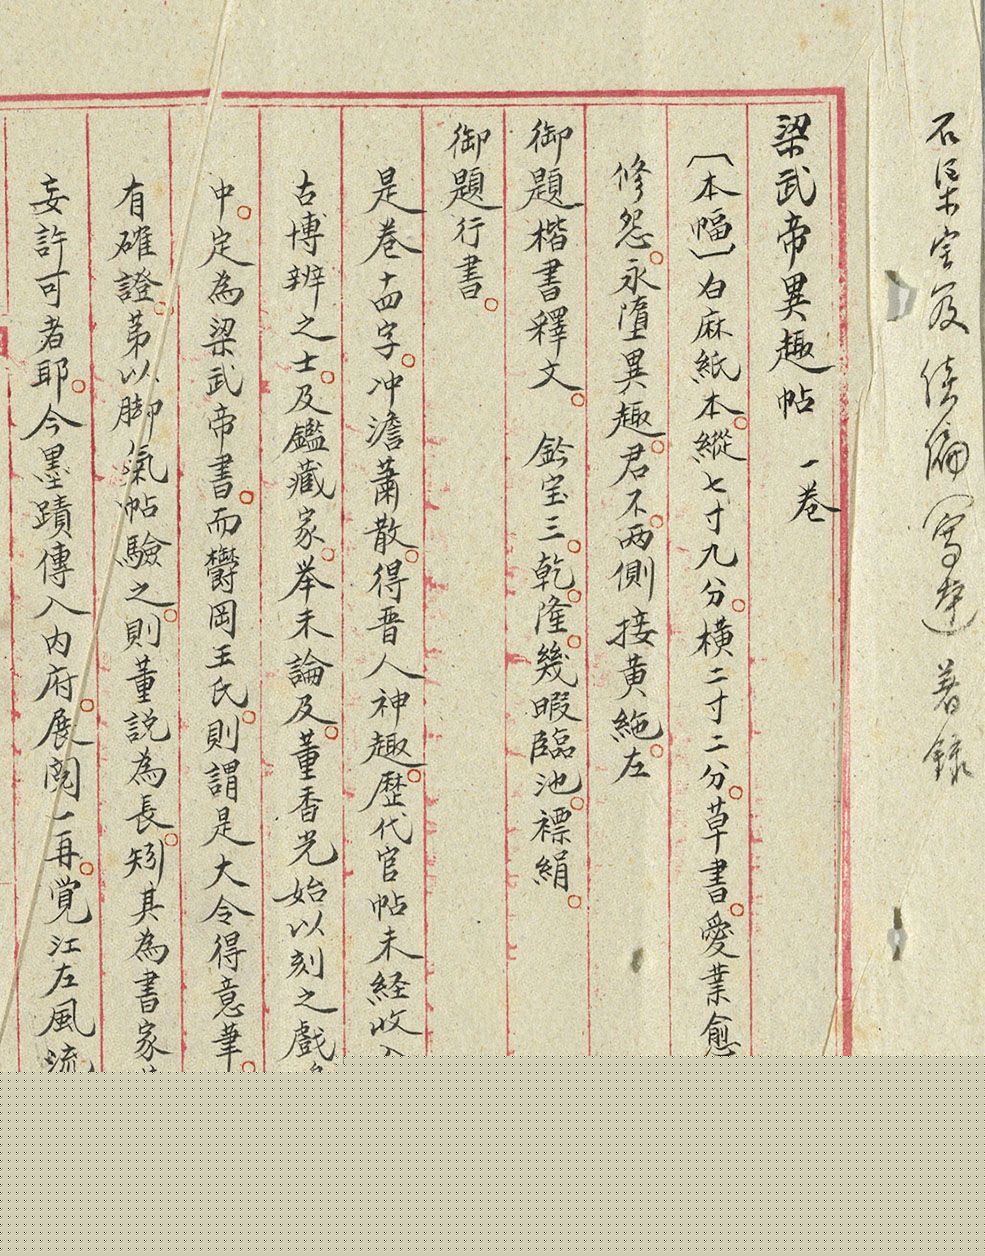 石渠宝笈 续编 寧遠 著録
梁武帝異趣帖 一卷
〔本幅〕白麻紙本。縱七寸九分。橫二寸二分。草書。愛業愈
修怨。永墮異趣。君不。两側接黄絁。左
御題楷書釋文。 鈐宝三。乾。隆。幾暇臨池。褾绢。
御題行書。
是卷十四字。冲澹蕭散。得晋人神趣。歷代官帖未経收
古博辨之士。及鑑藏家。举未論及。董香光始以刻之戲
中。定為梁武帝書。而欝岡王氏。則謂是大令得意筆。
有確證。苐以脚氣帖驗之。則董説為長。矧其為書家
妄許可者耶。今墨蹟傳入内府。展閱一再。覚江左風流